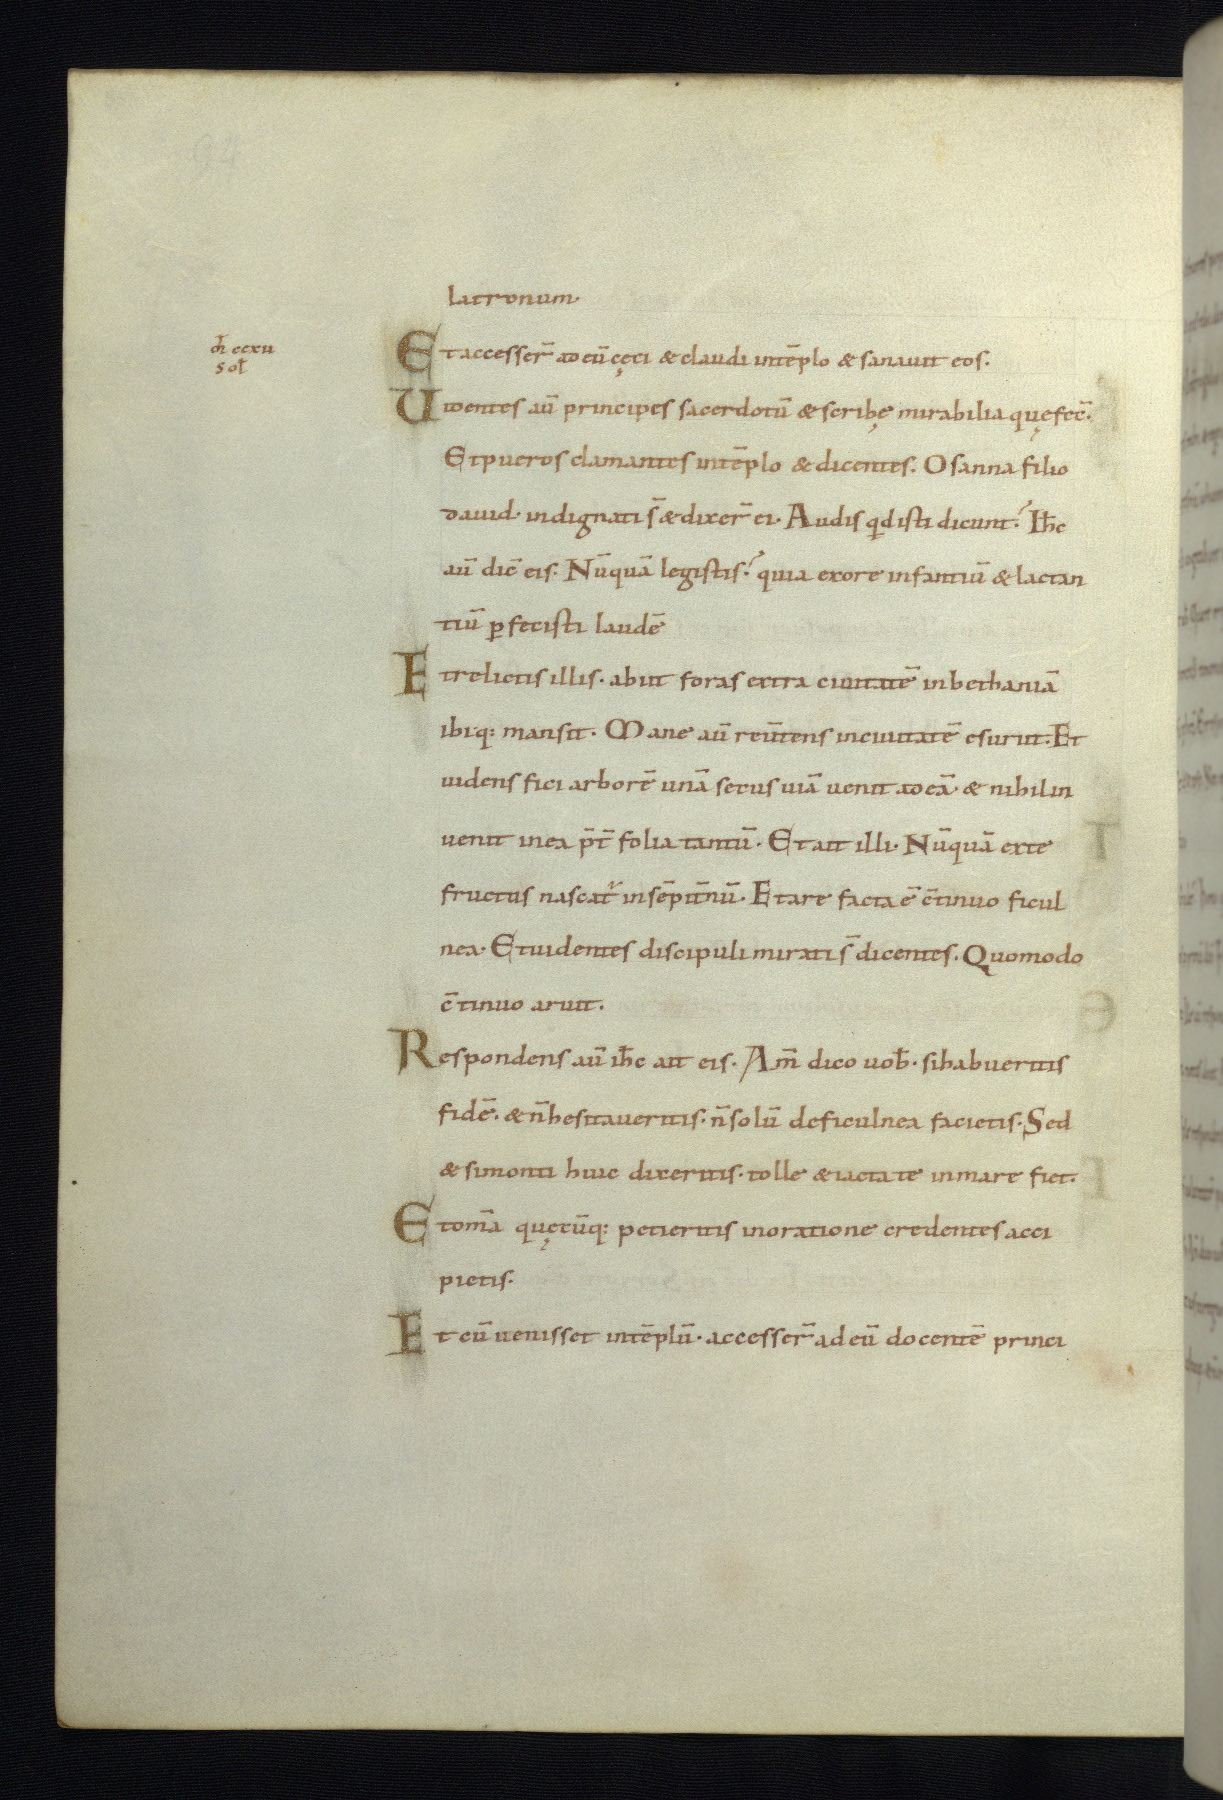 94
latronum·
m̄ ccxu
Et accesser̄ ad eū cęci & claudi intēplo & sanauit eos.
sol̄
Uidentes aū principes sacerdotū & scribę mirabilia quę fec̄.
Et pueros clamantes intēplo & dicentes. Osanna filio
dauid· indignati s̄ & dixer̄ ei· Audis qd isti dicunt? Ihc̄
aū dic̄ eis. Nūquā legistis? quia exore infantiū & lactan
tiū pfecisti laudē
Et relictis illis· abiit foras extra ciuitatē inbethaniā
ibiq; mansit. Mane aū reūtens inciuitatē esuriit. Et
uidens fici arborē unā secus uiā uenit ad eā· & nihil in
uenit in ea p̄t̄ folia tantū. Et ait illi. Nūquā exte
fructus nascat̄ insēpit̄nū. Et are facta ē c̄tinuo ficul
nea. Et uidentes discipuli mirati s̄ dicentes. Quomodo
c̄tinuo aruit.
Respondens aū ihc̄ ait eis. Am̄ dico uob̄· si habueritis
fidē. & n̄ hesitaueritis. n̄ solū deficulnea facietis. Sed
& si monti huic dixeritis· tolle & iacta te inmare fiet.
Et om̄a quęcūq; petieritis inoratione credentes acci
pietis.
Et cū uenisset intēplū· accesser̄ ad eū docentē princi